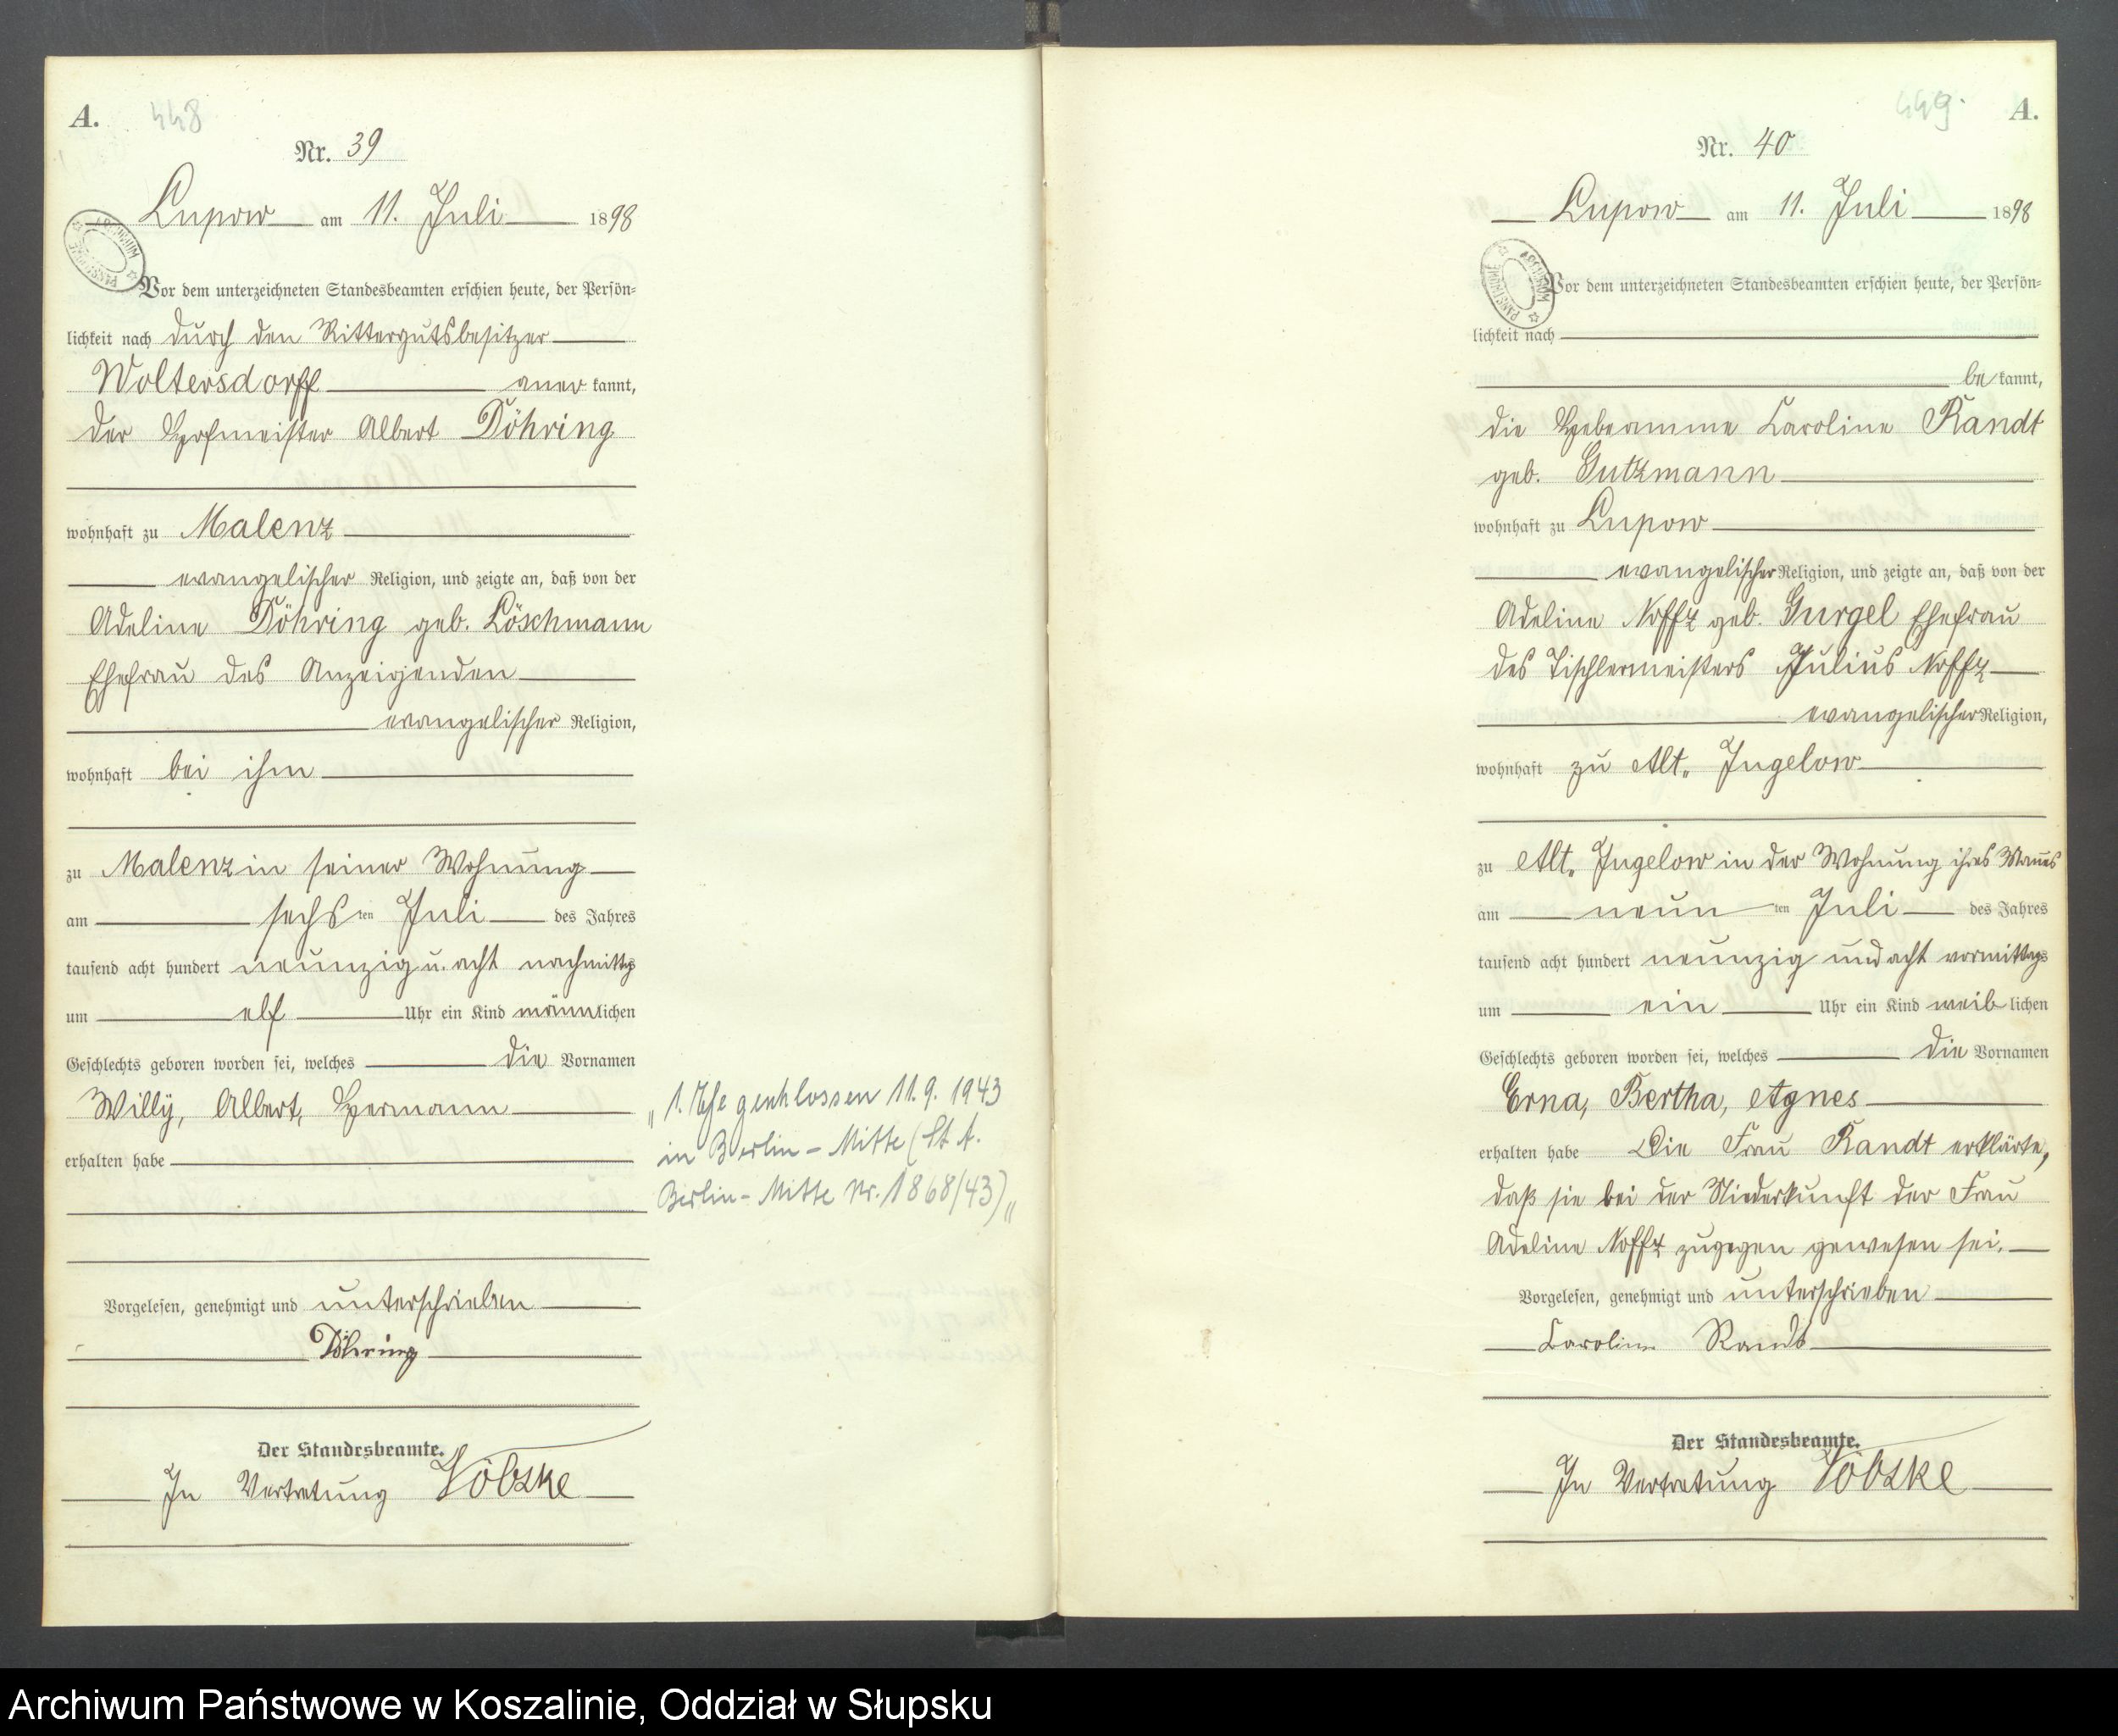 A. 448
Nr. 39
Lupow am 11. Juli 1898
Vor dem unterzeichneten Standesbeamten erschien heute, der Persön=
lichkeit nach durch den Rittergutsbesitzer
Woltersdorff aner kannt,
der Hofmeister Albert Döhring
wohnhaft zu Malenz
evangelischer Religion, und zeigte an, daß von der
Adeline Döhring geb. Löschmann
Ehefrau des Anzeigenden
evangelischer Religion,
wohnhaft bei ihm
zu Malenz in seiner Wohnung
am sechs ten Juli des Jahres
tausend acht hundert neunzig u. acht nachmittgs
um elf Uhr ein Kind männlichen
Geschlechts geboren worden sei, welches die Vornamen
Willy, Albert, Hermann
erhalten habe
Vorgelesen, genehmigt und unterschrieben
Döhring
Der Standesbeamte.
In Vertretung
„1. Ehe geschlossen 11.9.1943
in Berlin-Mitte (St A.
Berlin-Mitte Nr. 1868/43)„
449. A.
Nr. 40
Lupow am 11. Juli 1898
ARCHIWUM PAŃSTWOWE
Vor dem unterzeichneten Standesbeamten erschien heute, der Persön=
lichkeit nach
be kannt,
die Hebeamme Caroline Randt
geb. Gutzmann
wohnhaft zu Lupow
evangelischer Religion, und zeigte an, daß von der
Adeline Noffz geb. Gurgel Ehefrau
des Tischlermeisters Julius Noffz
evangelischer Religion,
wohnhaft zu Alt„ Jugelow
zu Alt„ Jugelow in der Wohnung ihres Mannes
am neun ten Juli des Jahres
tausend acht hundert neunzig und acht vormittags
um ein Uhr ein Kind weib lichen
Geschlechts geboren worden sei, welches die Vornamen
Erna, Bertha, Agnes
erhalten habe Die Frau Randt erklärte,
daß sie bei der Niederkunft der Frau
Adeline Noffz zugegen gewesen sei.
Vorgelesen, genehmigt und unterschrieben
Caroline Randt
Der Standesbeamte.
In Vertretung
Archiwum Państwowe w Koszalinie, Oddział w Słupsku